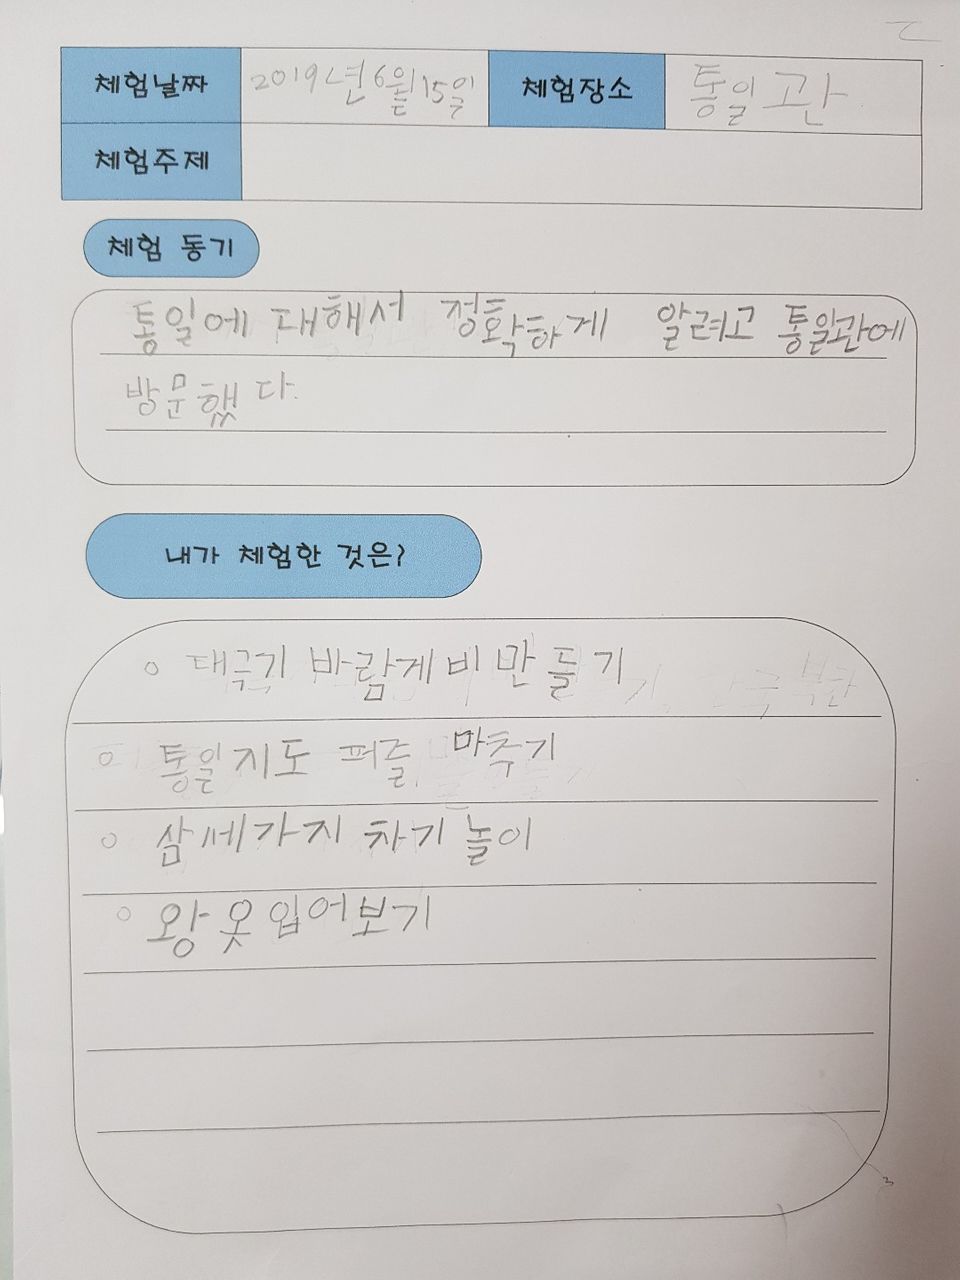 체험날짜 2019년 6월 15일 체험장소 통일관
체험주제
체험 동기
통일에 대해서 정확하게 알려고 통일관에
방문했다.
내가 체험한 것은?
○ 태극기 바람게비 만들기
○ 통일지도 퍼즐 마추기
○ 삼세가지 차기 놀이
○ 왕 옷 입어보기